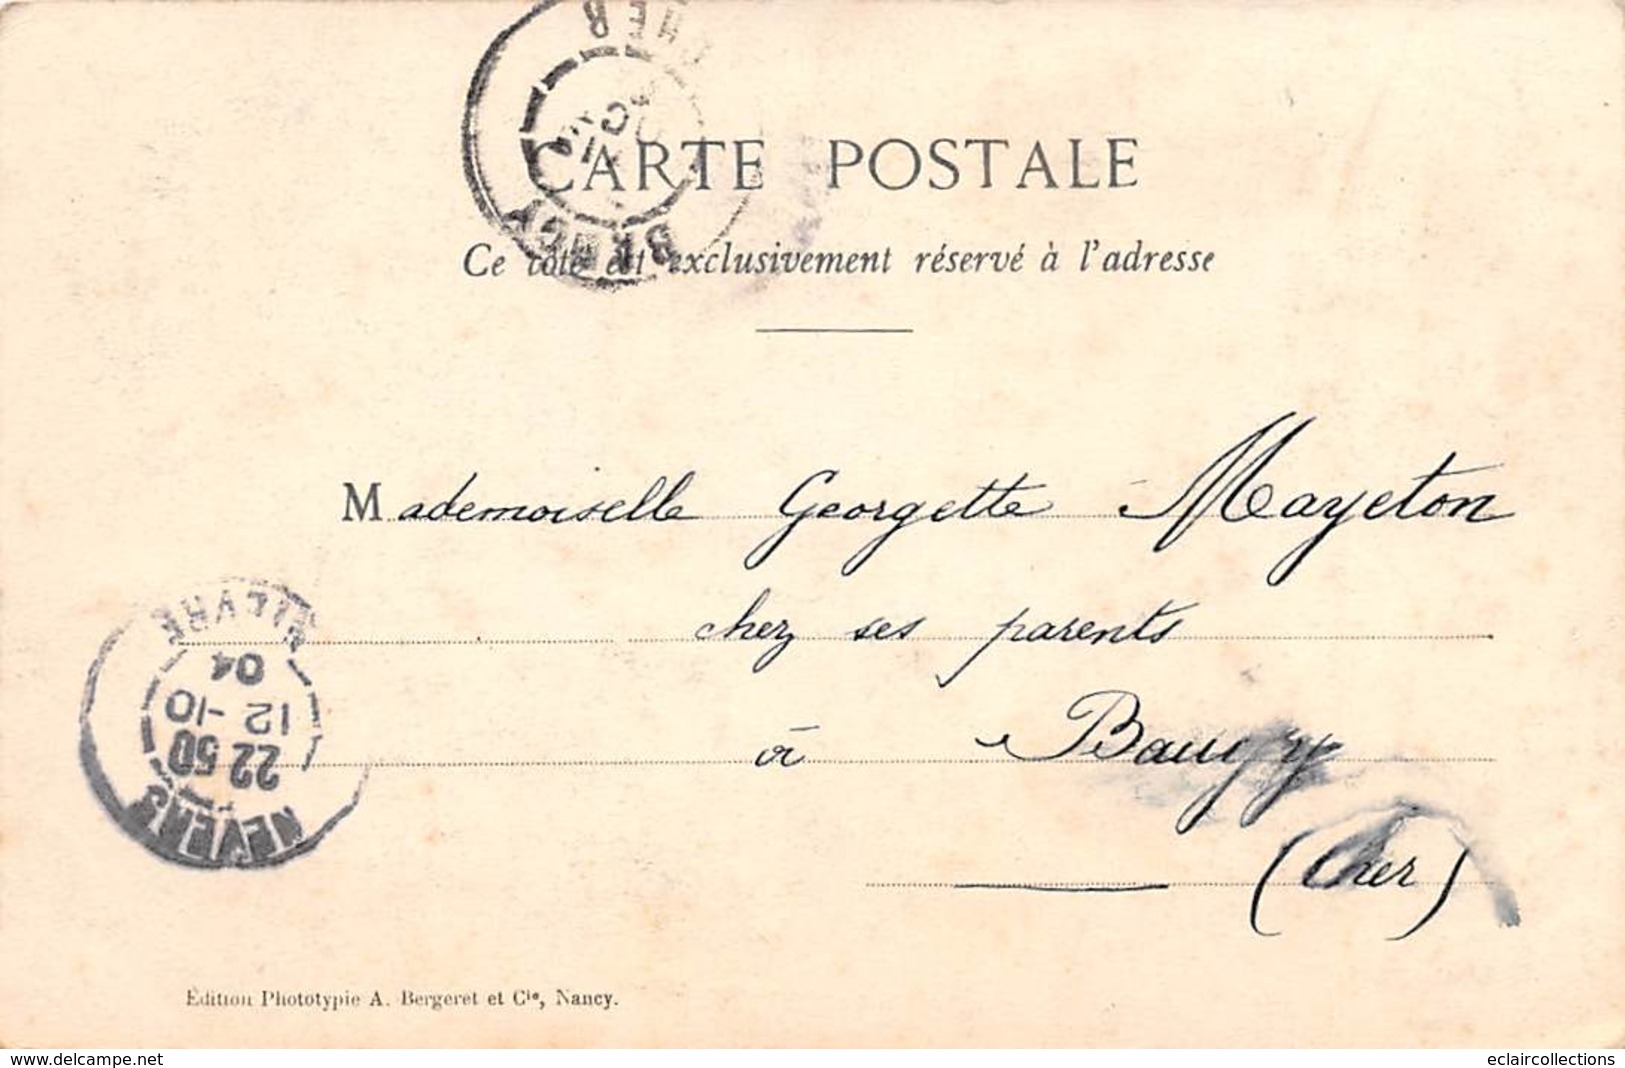 CHER
CARTE POSTALE
Ce côté est exclusivement réservé à l'adresse
Mademoiselle Georgette Mayeton
chez ses parents
à Baugy
(Cher)
NIEVRE
04
12-10
22 50
NEVERS
Édition Phototypie A. Bergeret et Cie, Nancy.
www.delcampe.net
eclaircollections